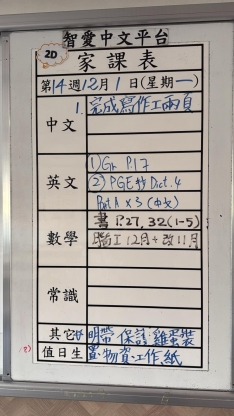 智愛中文平台
2D
家課表
第14週12月1日(星期一)
中文
1. 完成寫作工兩頁
英文
① Gr P.17
② PGE 抄 Dict. 4
Part A x 3 (中文)
數學
書 P.27, 32 (1-5)
腦工12月+改11月
常識
其它 明帶 保護 雞蛋裝
值日生 置物資、工作紙